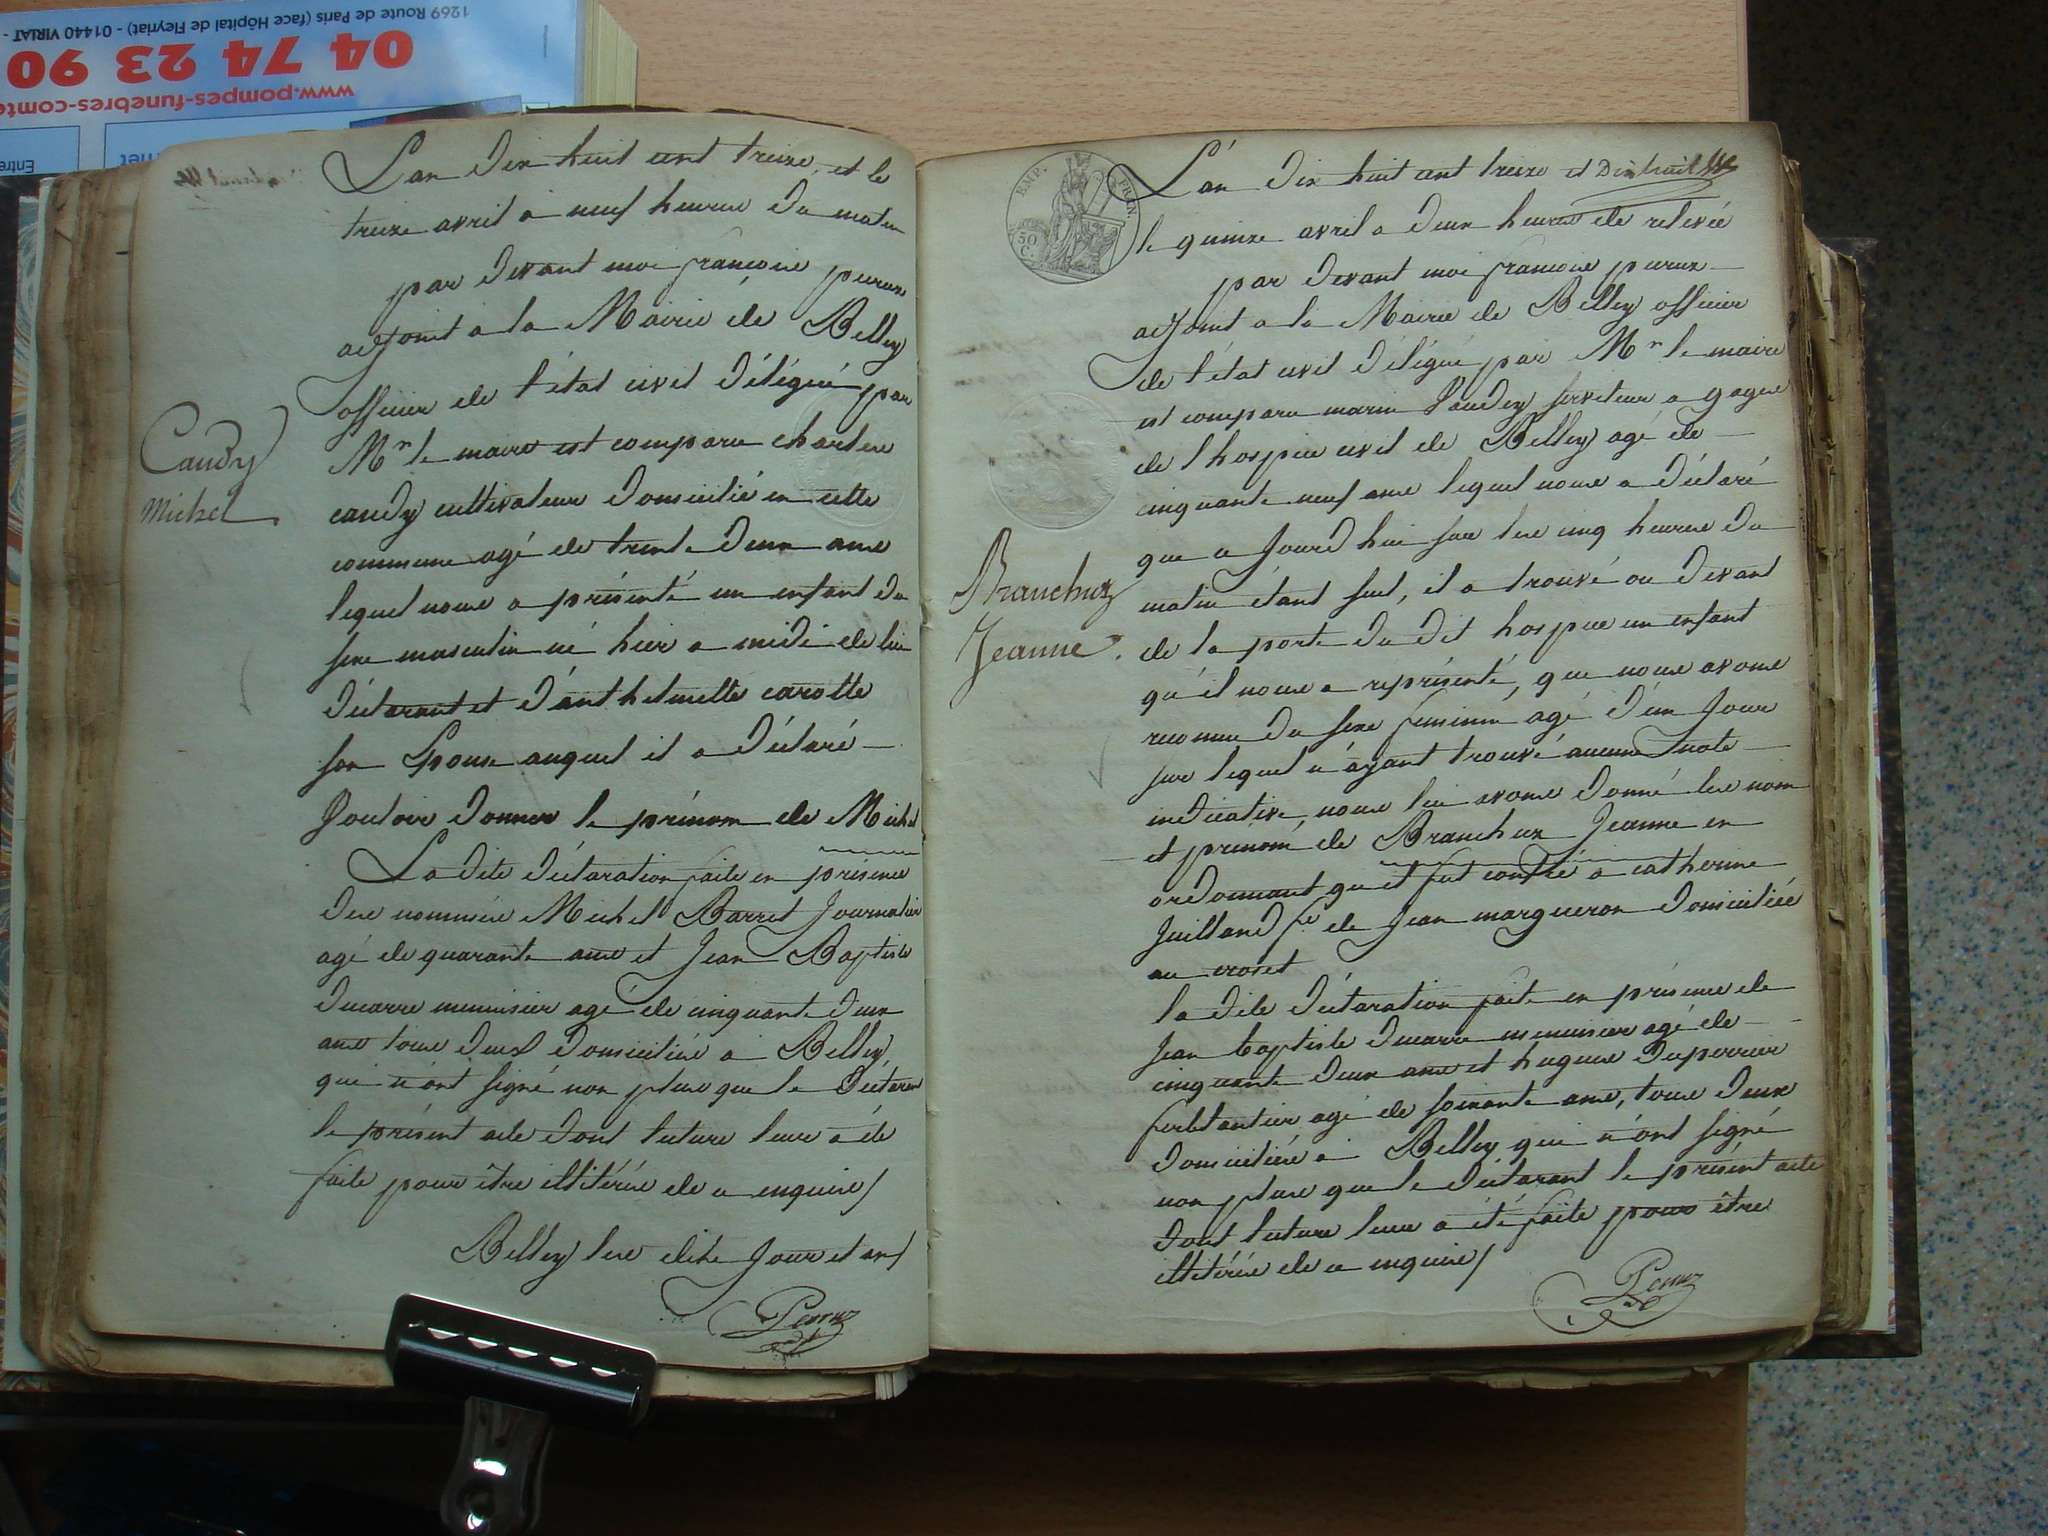 1269 Route de Paris (face Hôpital de Fleyriat) - 01440 VIRIAT -
04 74 23 90
www.pompes-funebres-comte
Entre
L'an dix huit cent treize, et le
treize avril a neuf heures du matin
par devant moi françois peruz
adjoint a la Mairie de Belley
officier de l'état civil délégué par
Mr le maire est comparu charles
caudy cultivateur domicilié en cette
commune agé de trente deux ans
lequel nous a présenté un enfant du
sexe masculin né hier a midi de lui
déclarant et d'anthelmette carotte
son Epouse auquel il a déclaré
Vouloir donner le prénom de Michel
La dite déclaration faite en présence
des nommés Michel Barret Journalier
agé de quarante ans et Jean Baptiste
Ducarre menuisier agé de cinquante deux
ans tous deux domiciliés a Belley
qui n'ont signé non plus que le déclarant
le présent acte dont lecture leur a été
faite pour être illitérés de ce enquis/
Belley les dits Jour et an/
Peruz
Caudy
Michel
EMP. FRAN.
50 C.
L'an dix huit cent treize et
le quinze avril a deux heures de relevée
par devant moi françois peruz
adjoint a la Mairie de Belley officier
de l'état civil délégué par Mr le maire
est comparu marin Vaudey serviteur a gages
de l'hospice civil de Belley agé de
cinquante neuf ans lequel nous a déclaré
que ce Jourd'hui sur les cinq heures du
matin étant seul, il a trouvé au devant
de la porte du dit hospice un enfant
qu'il nous a représenté, que nous avons
reconnu du sexe feminin agé d'un Jour
sur lequel n'ayant trouvé aucune note
indicative, nous lui avons donné les nom
et prénom de Branchux Jeanne en
ordonnant qu'il fut confié a catherine
Juilland fe de Jean margueron domiciliée
au croset
la dite déclaration faite en présence de
Jean baptiste Ducarre menuisier agé de
cinquante deux ans et hugues Duperrier
ferblantier agé de soixante ans, tous deux
domiciliés a Belley qui n'ont signé
non plus que le déclarant le présent acte
dont lecture leur a été faite pour être
illitérés de ce enquis/
Peruz
Branchux
Jeanne